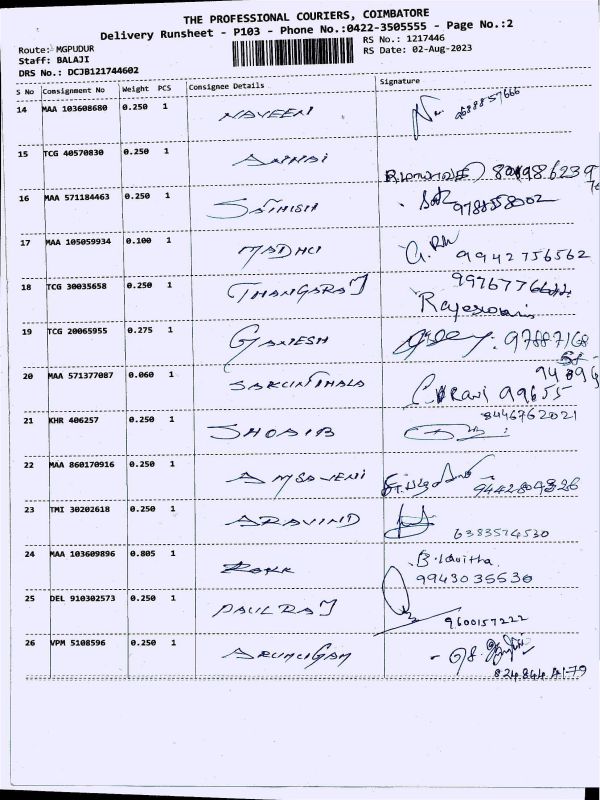 THE PROFESSIONAL COURIERS, COIMBATORE
Delivery Runsheet - P103 - Phone No.:0422-3505555 - Page No.:2
Route: MGPUDUR
RS No.: 1217446
Staff: BALAJI
RS Date: 02-Aug-2023
DRS No.: DCJB121744602
S No Consignment No Weight PCS Consignee Details Signature
14 MAA 103608680 0.250 1 NAVEEN
15 TCG 40570830 0.250 1
16 MAA 571184463 0.250 1 SATHISH 9788558002
17 MAA 105059934 0.100 1 MADHU 9942756562
18 TCG 30035658 0.250 1 THANGARAJ
Rajeswari
19 TCG 20065955 0.275 1 GANESH
20 MAA 571377087 0.060 1 SAKUNTHALA
21 KHR 406257 0.250 1 SHOAIB 8446762021
22 MAA 860170916 0.250 1 AMSAVENI
23 TMI 30202618 0.250 1 ARAVIND 6383574530
24 MAA 103609896 0.805 1 9943035530
25 DEL 910302573 0.250 1 PAULRAJ 9600157222
26 VPM 5108596 0.250 1 ARUMUGAM